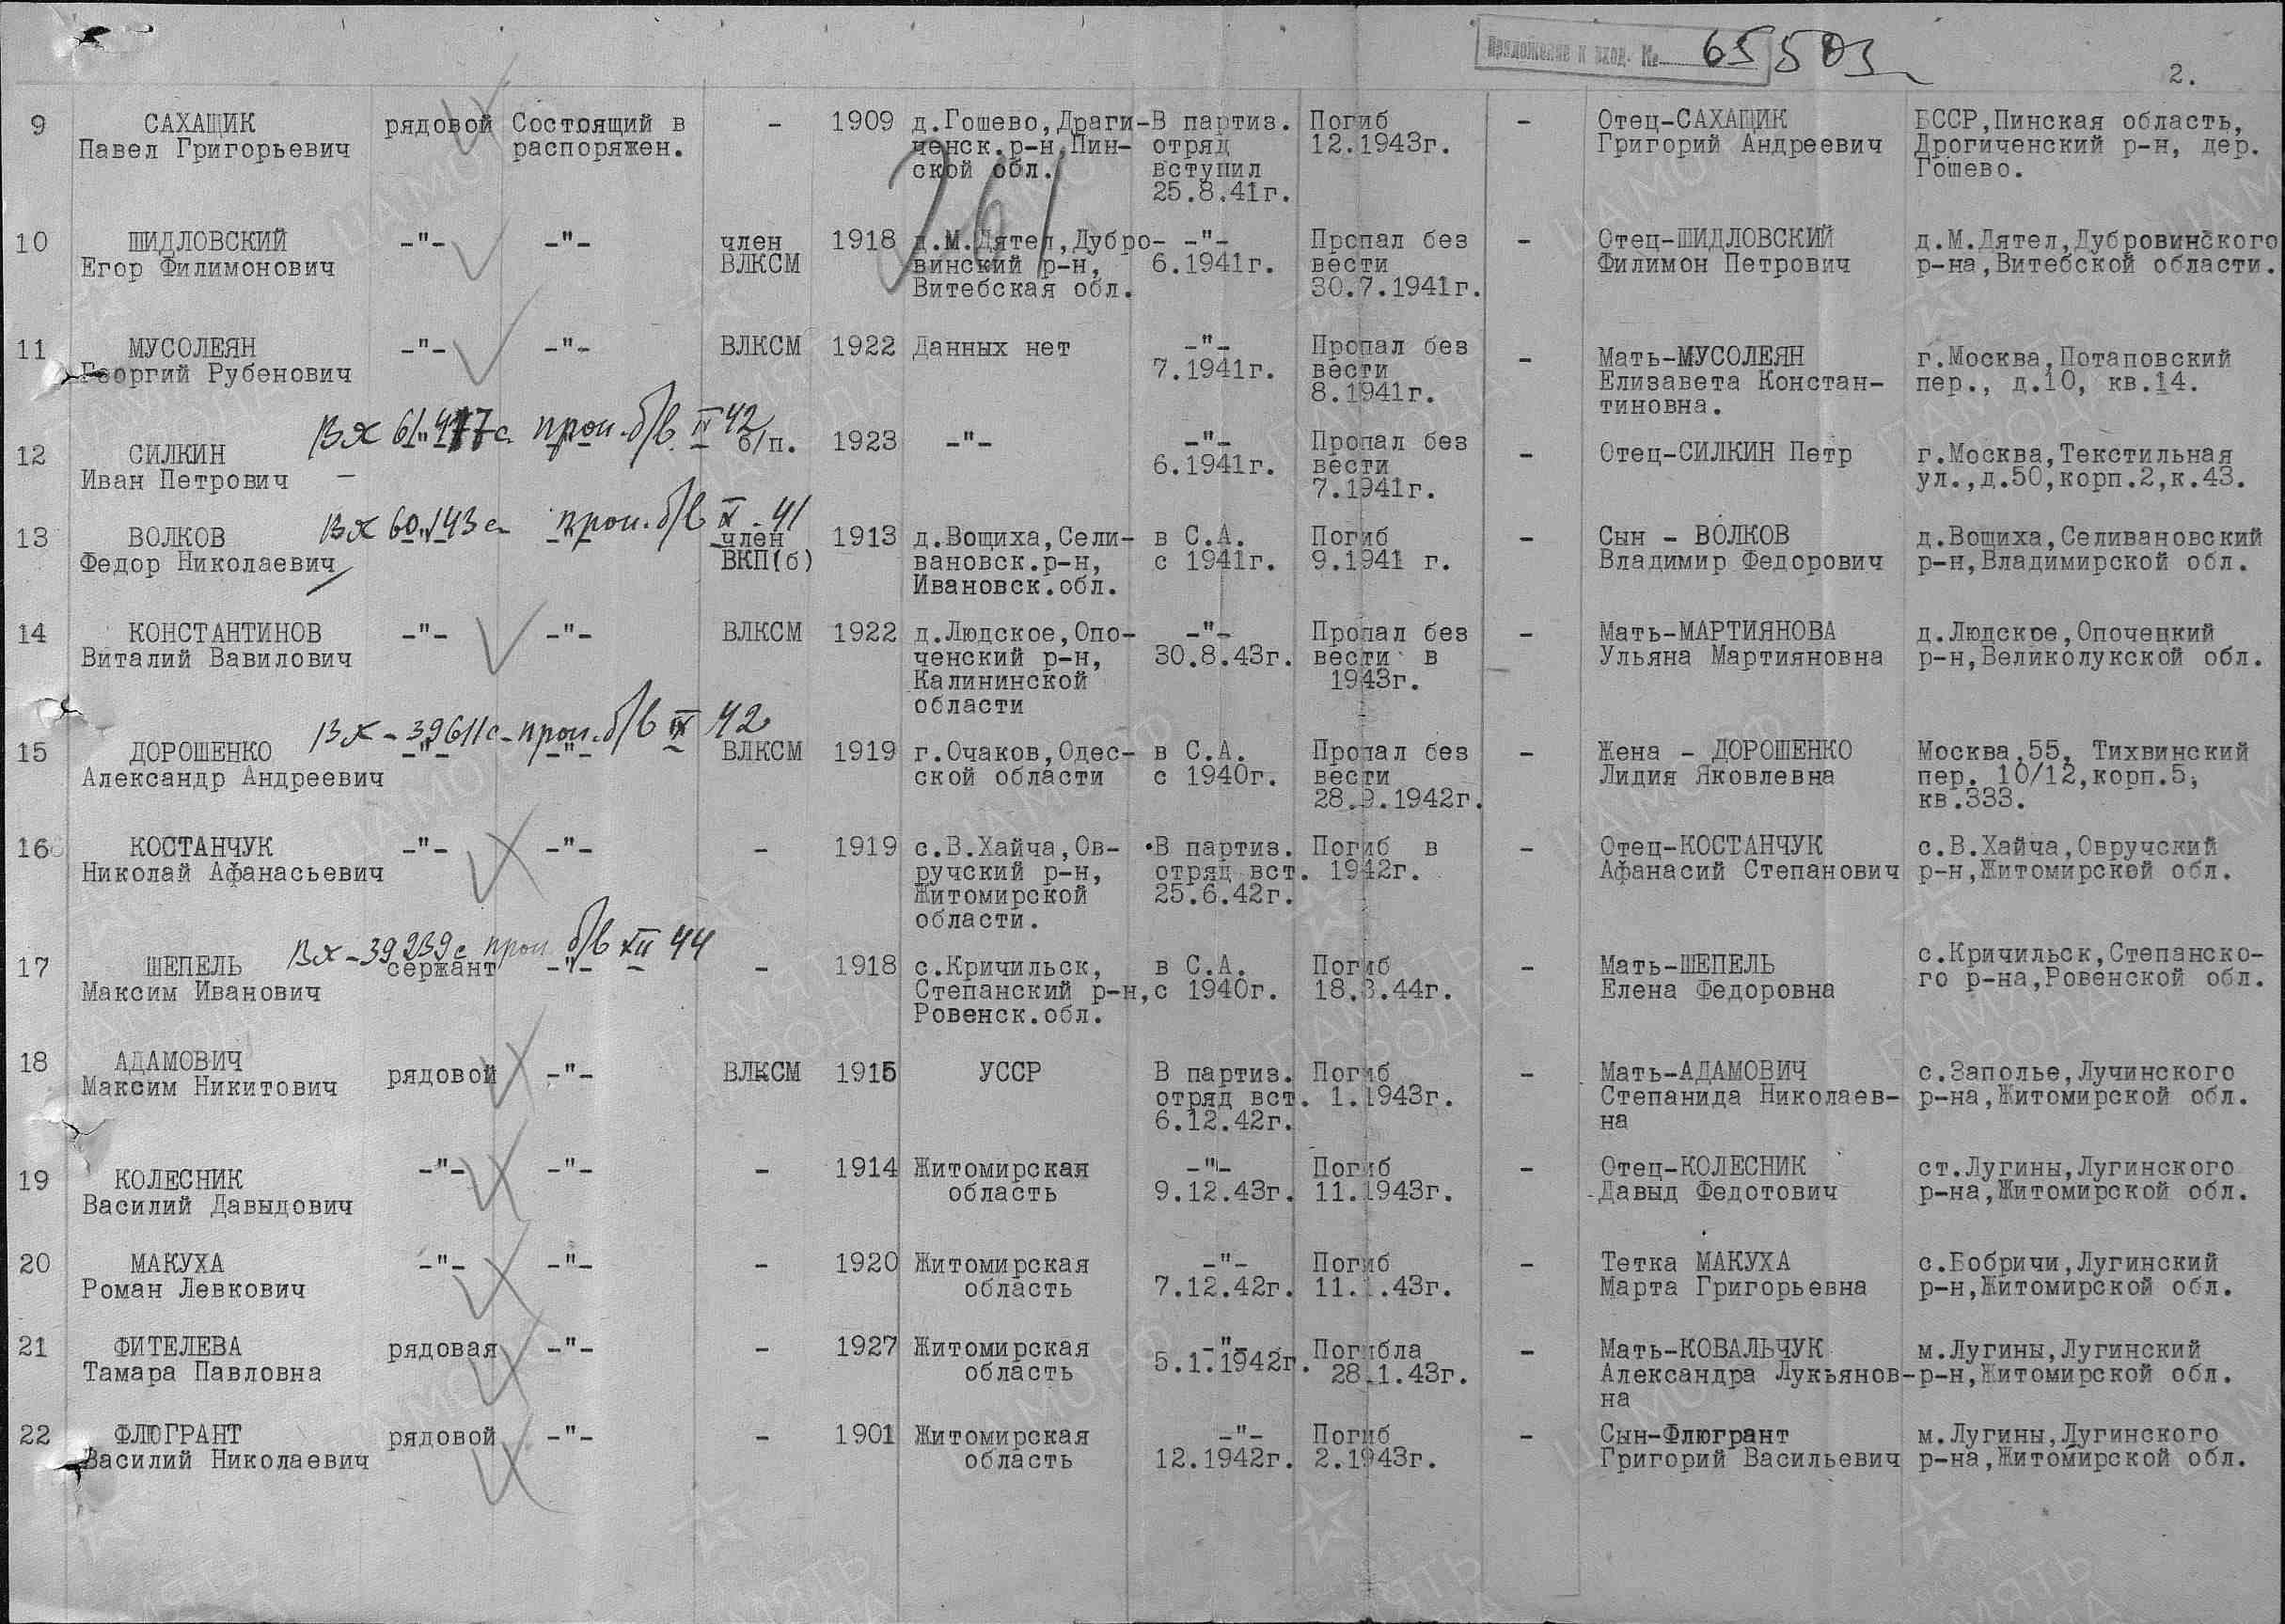 Приложение к вход. № 65503
2.
9 САХАЩИК рядовой Состоящий в - 1909 д.Гошево,Драги- В партиз. Погиб - Отец-САХАЩИК БССР,Пинская область,
Павел Григорьевич распоряжен. ченск.р-н,Пин- отряд 12.1943г. Григорий Андреевич Дрогиченский р-н, дер.
ской обл. вступил Гошево.
25.8.41г.
10 ШИДЛОВСКИЙ -"- -"- член 1918 д.М.Дятел,Дубро- -"- Пропал без - Отец-ШИДЛОВСКИЙ д.М.Дятел,Дубровинского
Егор Филимонович ВЛКСМ винский р-н, 6.1941г. вести Филимон Петрович р-на,Витебской области.
Витебская обл. 30.7.1941г.
11 МУСОЛЕЯН -"- -"- ВЛКСМ 1922 Данных нет -"- Пропал без - Мать-МУСОЛЕЯН г.Москва,Потаповский
Георгий Рубенович 7.1941г. вести Елизавета Констан- пер., д.10, кв.14.
8.1941г. тиновна.
Вх 61477с проп. б/в II 42
12 СИЛКИН -"- -"- б/п. 1923 -"- -"- Пропал без - Отец-СИЛКИН Петр г.Москва,Текстильная
Иван Петрович 6.1941г. вести ул.,д.50,корп.2,к.43.
7.1941г.
Вх 60143с проп. б/в IX-41
13 ВОЛКОВ -"- -"- член 1913 д.Вощиха,Сели- в С.А. Погиб - Сын - ВОЛКОВ д.Вощиха,Селивановский
Федор Николаевич ВКП(б) вановск.р-н, с 1941г. 9.1941 г. Владимир Федорович р-н,Владимирской обл.
Ивановск.обл.
14 КОНСТАНТИНОВ -"- -"- ВЛКСМ 1922 д.Людское,Опо- -"- Пропал без - Мать-МАРТИЯНОВА д.Людское,Опочецкий
Виталий Вавилович ченский р-н, 30.8.43г. вести в Ульяна Мартияновна р-н,Великолукской обл.
Калининской 1943г.
области
Вх-39611с-проп. б/в IX 42
15 ДОРОШЕНКО -"- -"- ВЛКСМ 1919 г.Очаков,Одес- в С.А. Пропал без - Жена - ДОРОШЕНКО Москва,55, Тихвинский
Александр Андреевич ской области с 1940г. вести Лидия Яковлевна пер. 10/12,корп.5,
28.9.1942г. кв.333.
16 КОСТАНЧУК -"- -"- - 1919 с.В.Хайча,Ов- В партиз. Погиб в - Отец-КОСТАНЧУК с.В.Хайча,Овручский
Николай Афанасьевич ручский р-н, отряд вст. 1942г. Афанасий Степанович р-н,Житомирской обл.
Житомирской 25.6.42г.
области.
Вх-39239с проп б/в XII 44
17 ШЕПЕЛЬ сержант -"- - 1918 с.Кричильск, в С.А. Погиб - Мать-ШЕПЕЛЬ с.Кричильск,Степанско-
Максим Иванович Степанский р-н, с 1940г. 18.3.44г. Елена Федоровна го р-на,Ровенской обл.
Ровенск.обл.
18 АДАМОВИЧ рядовой -"- ВЛКСМ 1915 УССР В партиз. Погиб - Мать-АДАМОВИЧ с.Заполье,Лучинского
Максим Никитович отряд вст. 1.1943г. Степанида Николаев- р-на,Житомирской обл.
6.12.42г. на
19 КОЛЕСНИК -"- -"- - 1914 Житомирская -"- Погиб - Отец-КОЛЕСНИК ст.Лугины,Лугинского
Василий Давыдович область 9.12.43г. 11.1943г. Давыд Федотович р-на,Житомирской обл.
20 МАКУХА -"- -"- - 1920 Житомирская -"- Погиб - Тетка МАКУХА с.Бобричи,Лугинский
Роман Левкович область 7.12.42г. 11.1.43г. Марта Григорьевна р-н,Житомирской обл.
21 ФИТЕЛЕВА рядовая -"- - 1927 Житомирская -"- Погибла - Мать-КОВАЛЬЧУК м.Лугины,Лугинский
Тамара Павловна область 5.1.1942г. 28.1.43г. Александра Лукьянов- р-н,Житомирской обл.
на
22 ФЛЮГРАНТ рядовой -"- - 1901 Житомирская -"- Погиб - Сын-Флюгрант м.Лугины,Лугинского
Василий Николаевич область 12.1942г. 2.1943г. Григорий Васильевич р-на,Житомирской обл.